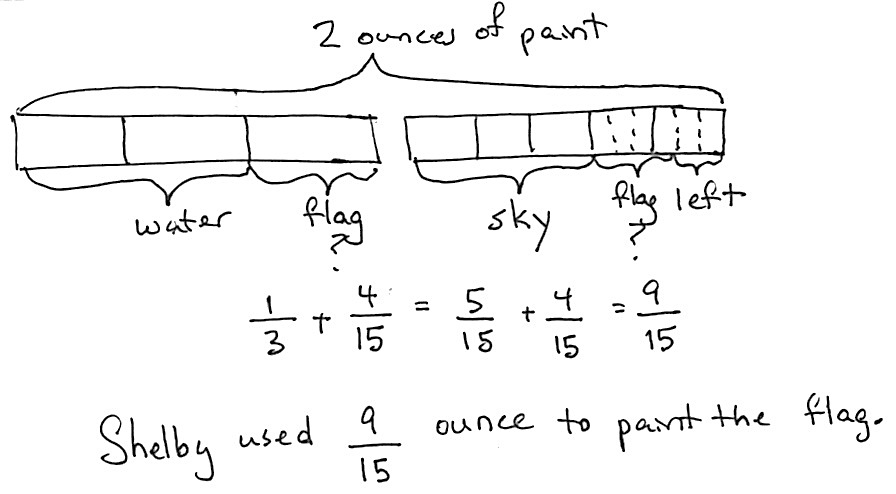 2 ounces of paint
water flag sky flag left
? ?
1/3 + 4/15 = 5/15 + 4/15 = 9/15
Shelby used 9/15 ounce to paint the flag.